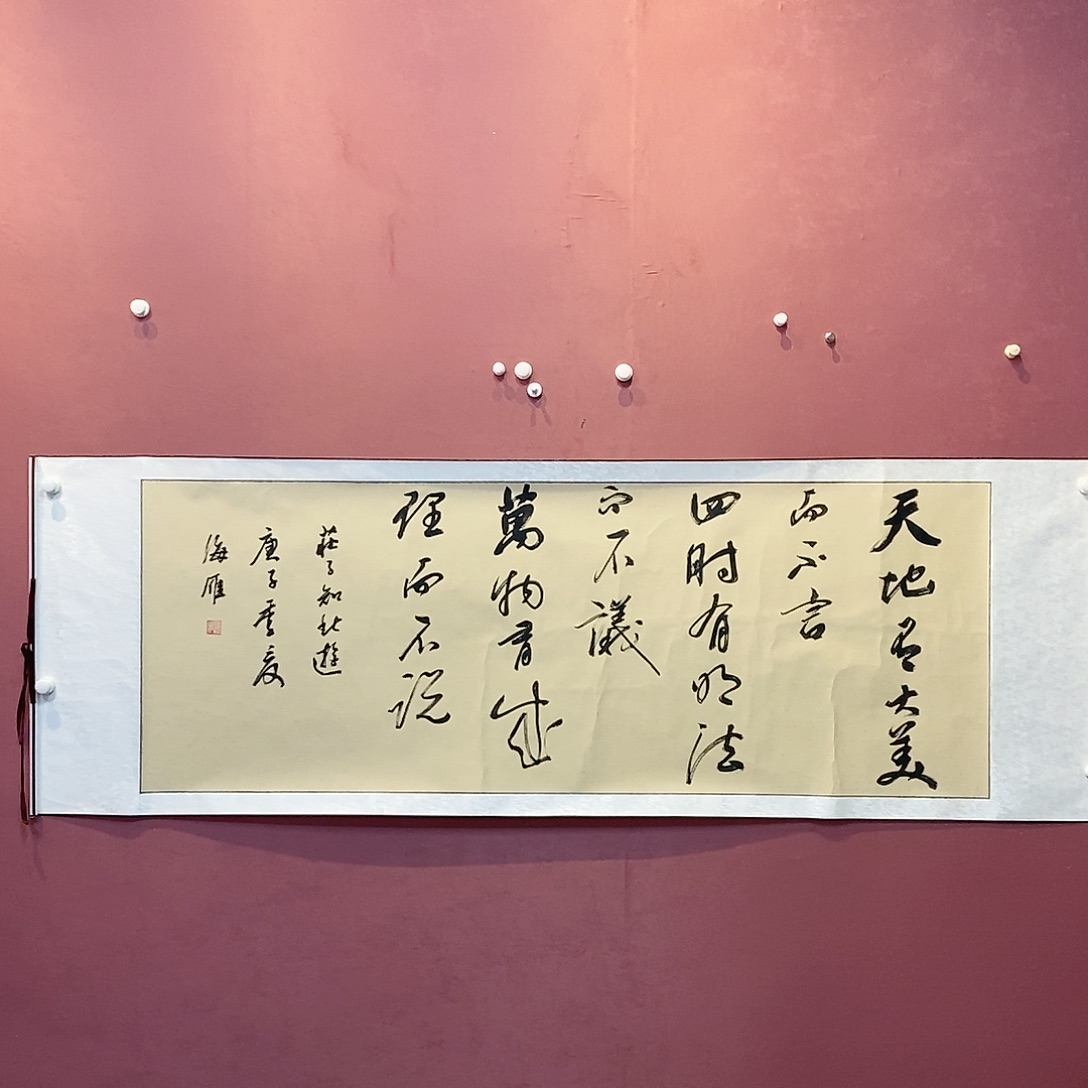 天地有大美
而不言
四时有明法
而不議
萬物有成
理而不说
莊子知北遊
庚子季夏
海雁